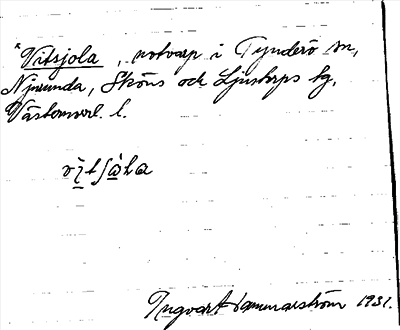 *Vitsjola, notvarp i Tynderö sn,
Njurunda, Sköns och Ljustorps sg,
Västernorrl. l.
vitʃòla
Ingvart Hammarström 1931.